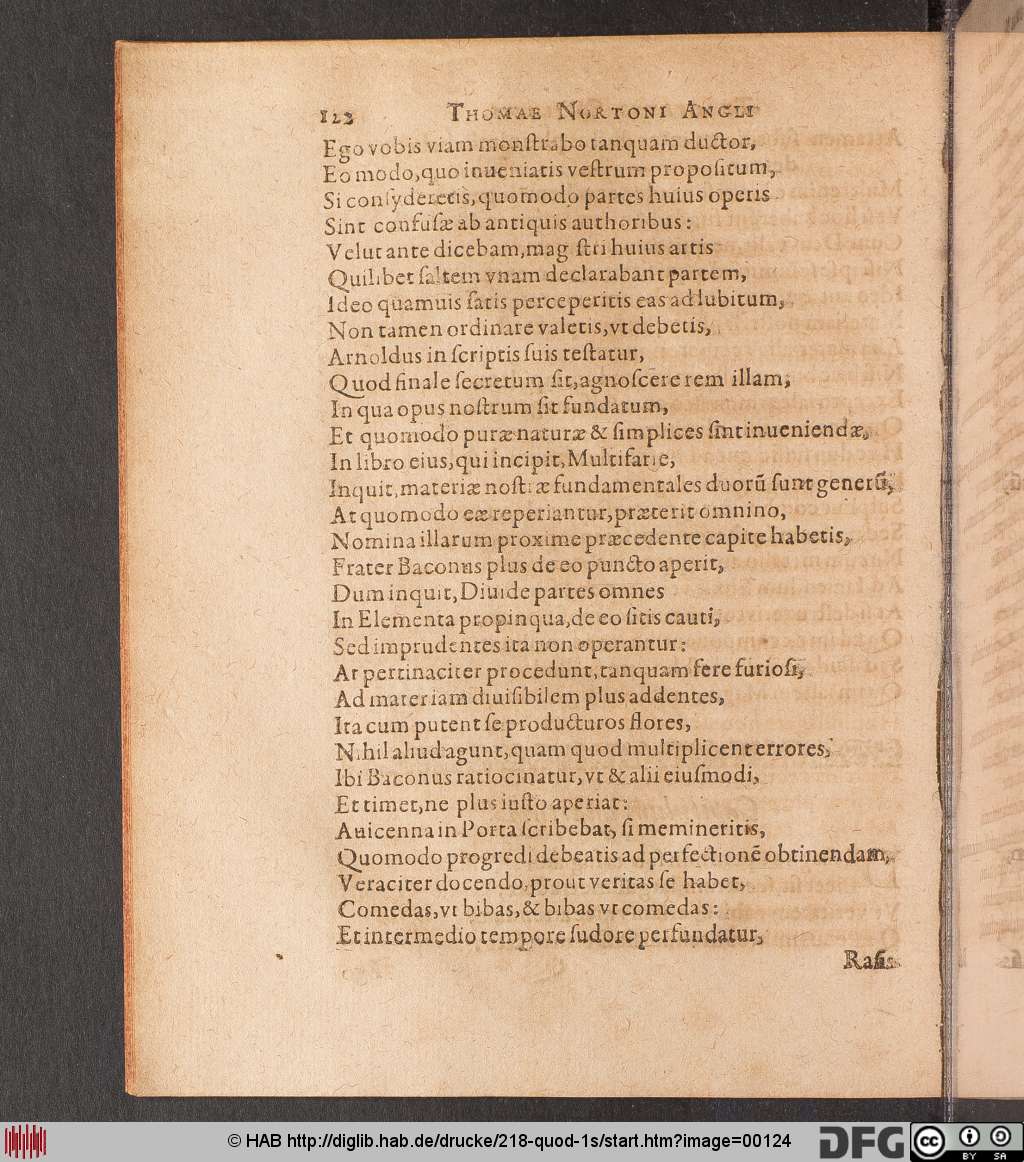 123 THOMAE NORTONI ANGLI
Ego vobis viam monſtrabo tanquam ductor,
Eo modo, quo inueniatis veſtrum propoſitum,
Si conſyderetis, quomodo partes huius operis
Sint confuſæ ab antiquis authoribus:
Velut ante dicebam, mag ſtri huius artis
Quilibet ſaltem vnam declarabant partem,
Ideo quamuis ſatis perceperitis eas ad lubitum,
Non tamen ordinare valetis, vt debetis,
Arnoldus in ſcriptis ſuis teſtatur,
Quod finale ſecretum ſit, agnoſcere rem illam,
In qua opus noſtrum ſit fundatum,
Et quomodo puræ naturæ & ſimplices ſint inueniendæ,
In libro eius, qui incipit, Multifarie,
Inquit, materiæ noſtræ fundamentales duorū ſunt generū,
At quomodo eæ reperiantur, præterit omnino,
Nomina illarum proxime præcedente capite habetis,
Frater Baconus plus de eo puncto aperit,
Dum inquit, Diuide partes omnes
In Elementa propinqua, de eo ſitis cauti,
Sed imprudentes ita non operantur:
At pertinaciter procedunt, tanquam fere furioſi,
Ad materiam diuiſibilem plus addentes,
Ita cum putent ſe producturos flores,
Nihil aliud agunt, quam quod multiplicent errores,
Ibi Baconus ratiocinatur, vt & alii eiuſmodi,
Et timet, ne plus iuſto aperiat:
Auicenna in Porta ſcribebat, ſi memineritis,
Quomodo progredi debeatis ad perfectionē obtinendam,
Veraciter docendo, prout veritas ſe habet,
Comedas, vt bibas, & bibas vt comedas:
Et intermedio tempore ſudore perfundatur,
Raſis
© HAB http://diglib.hab.de/drucke/218-quod-1s/start.htm?image=00124
DFG
cc BY SA